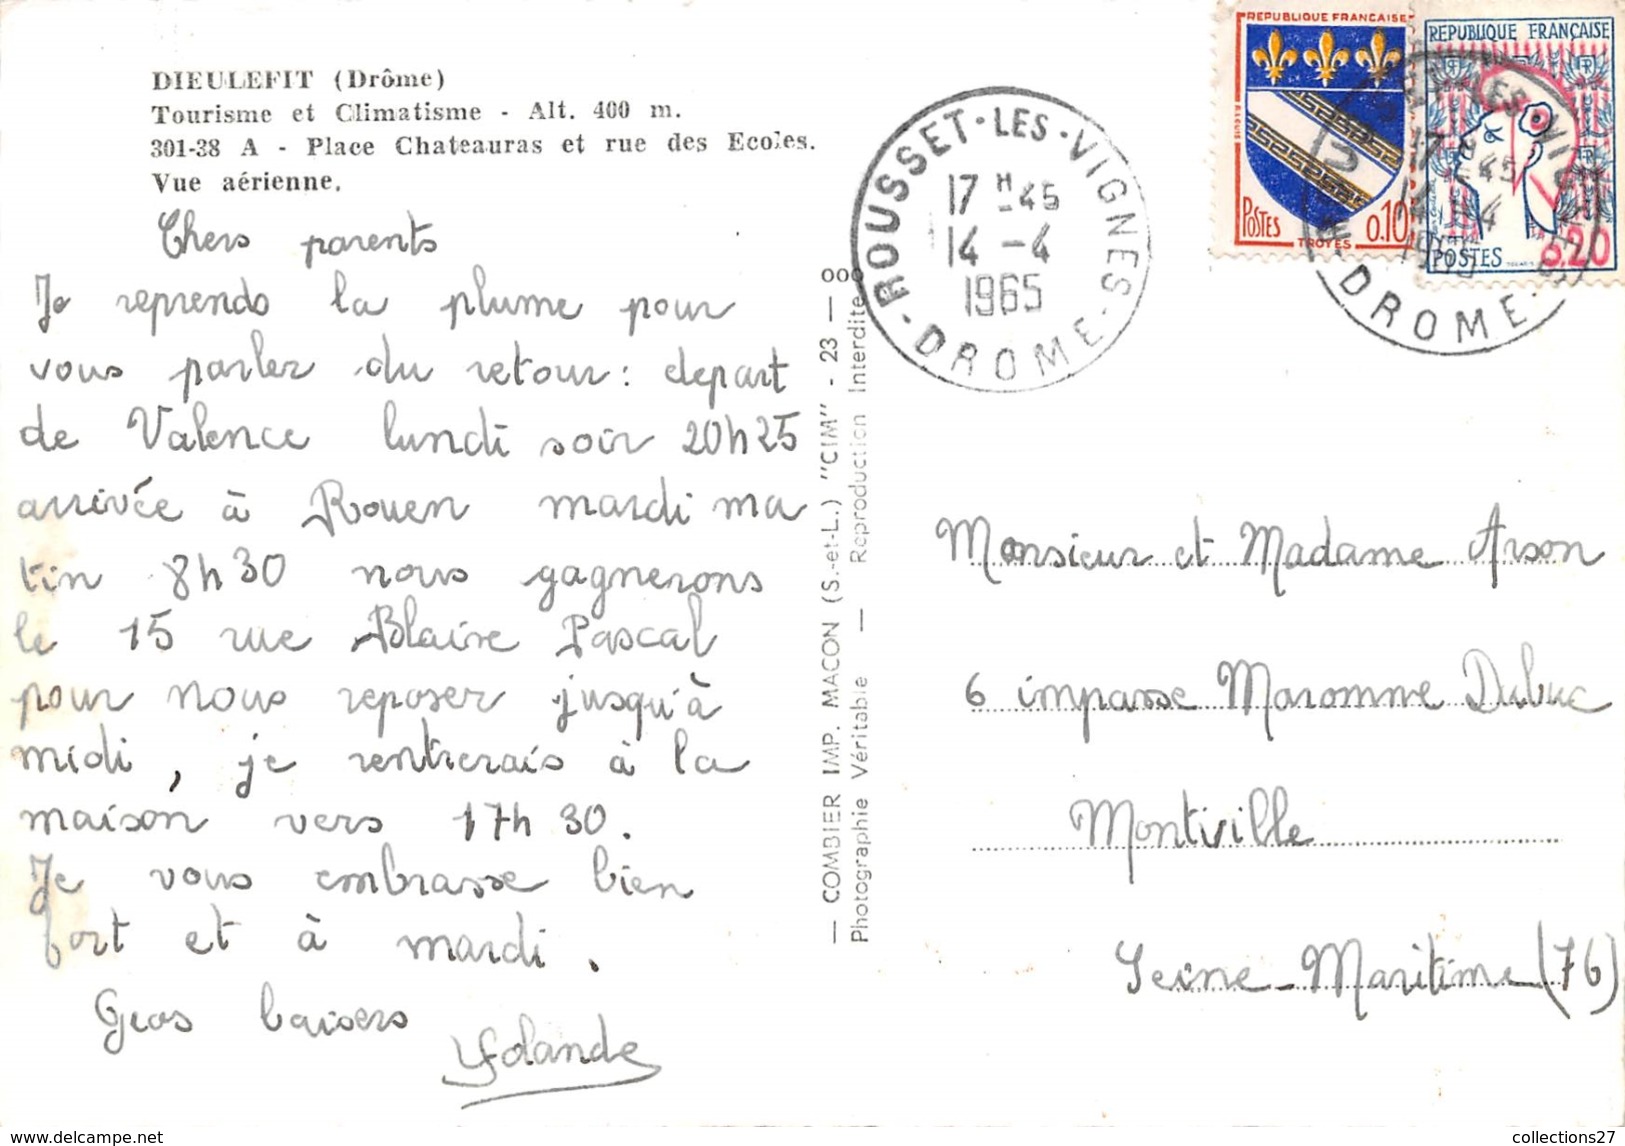 DIEULEFIT (Drôme)
Tourisme et Climatisme - Alt. 400 m.
301-38 A - Place Chateauras et rue des Ecoles.
Vue aérienne.
Chers parents
Je reprends la plume pour
vous parler du retour : depart
de Valence lundi soir 20h25
arrivée à Rouen mardi ma
tin 8h30 nous gagnerons
le 15 rue Blaise Pascal
pour nous reposer jusqu'à
midi, je rentrerais à la
maison vers 17h30.
Je vous embrasse bien
fort et à mardi.
Gros baisers
Yolande
— COMBIER IMP. MACON (S.-et-L.) "CIM" - 23 — ooo
Photographie Véritable — Reproduction Interdite
ROUSSET-LES-VIGNES
17H-45
14-4
1965
-DROME-
REPUBLIQUE FRANÇAISE
POSTES
0.10
TROYES
REPUBLIQUE FRANÇAISE
POSTES
0.20
17H45
14-4
DROME
Monsieur et Madame Arson
6 impasse Maromme Dubuc
Montville
Seine-Maritime (76)
https://www.delcampe.net
collections27